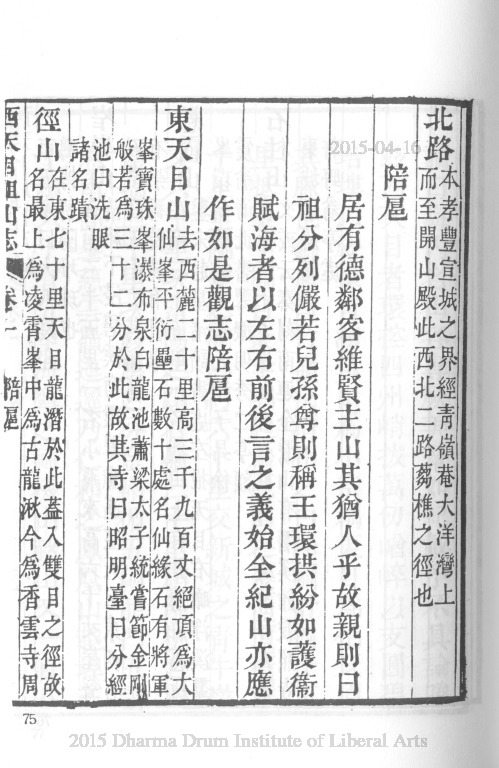 北路本孝豐宣城之界經靑嶺菴大洋灣上
而至開山殿此西北二路蒭樵之徑也
陪扈
居有德鄰客維賢主山其猶人乎故親則曰
祖分列儼若兒孫尊則稱王環拱紛如護衞
賦海者以左右前後言之義始全紀山亦應
作如是觀志陪扈
東天目山去西麓二十里高三千九百丈絕頂爲大
仙峯平衍壘石數十處名仙緣石有將軍
峯寶珠峯瀑布泉白龍池蕭梁太子統嘗節金剛
般若爲三十二分於此故其寺曰昭明臺曰分經
池曰洗眼
諸名蹟
徑山在東七十里天目龍潛於此葢入雙目之徑故
名最上爲凌霄峯中爲古龍湫今爲香雲寺周
西天目祖山志 卷一 陪扈
2015-04-16
75
2015 Dharma Drum Institute of Liberal Arts